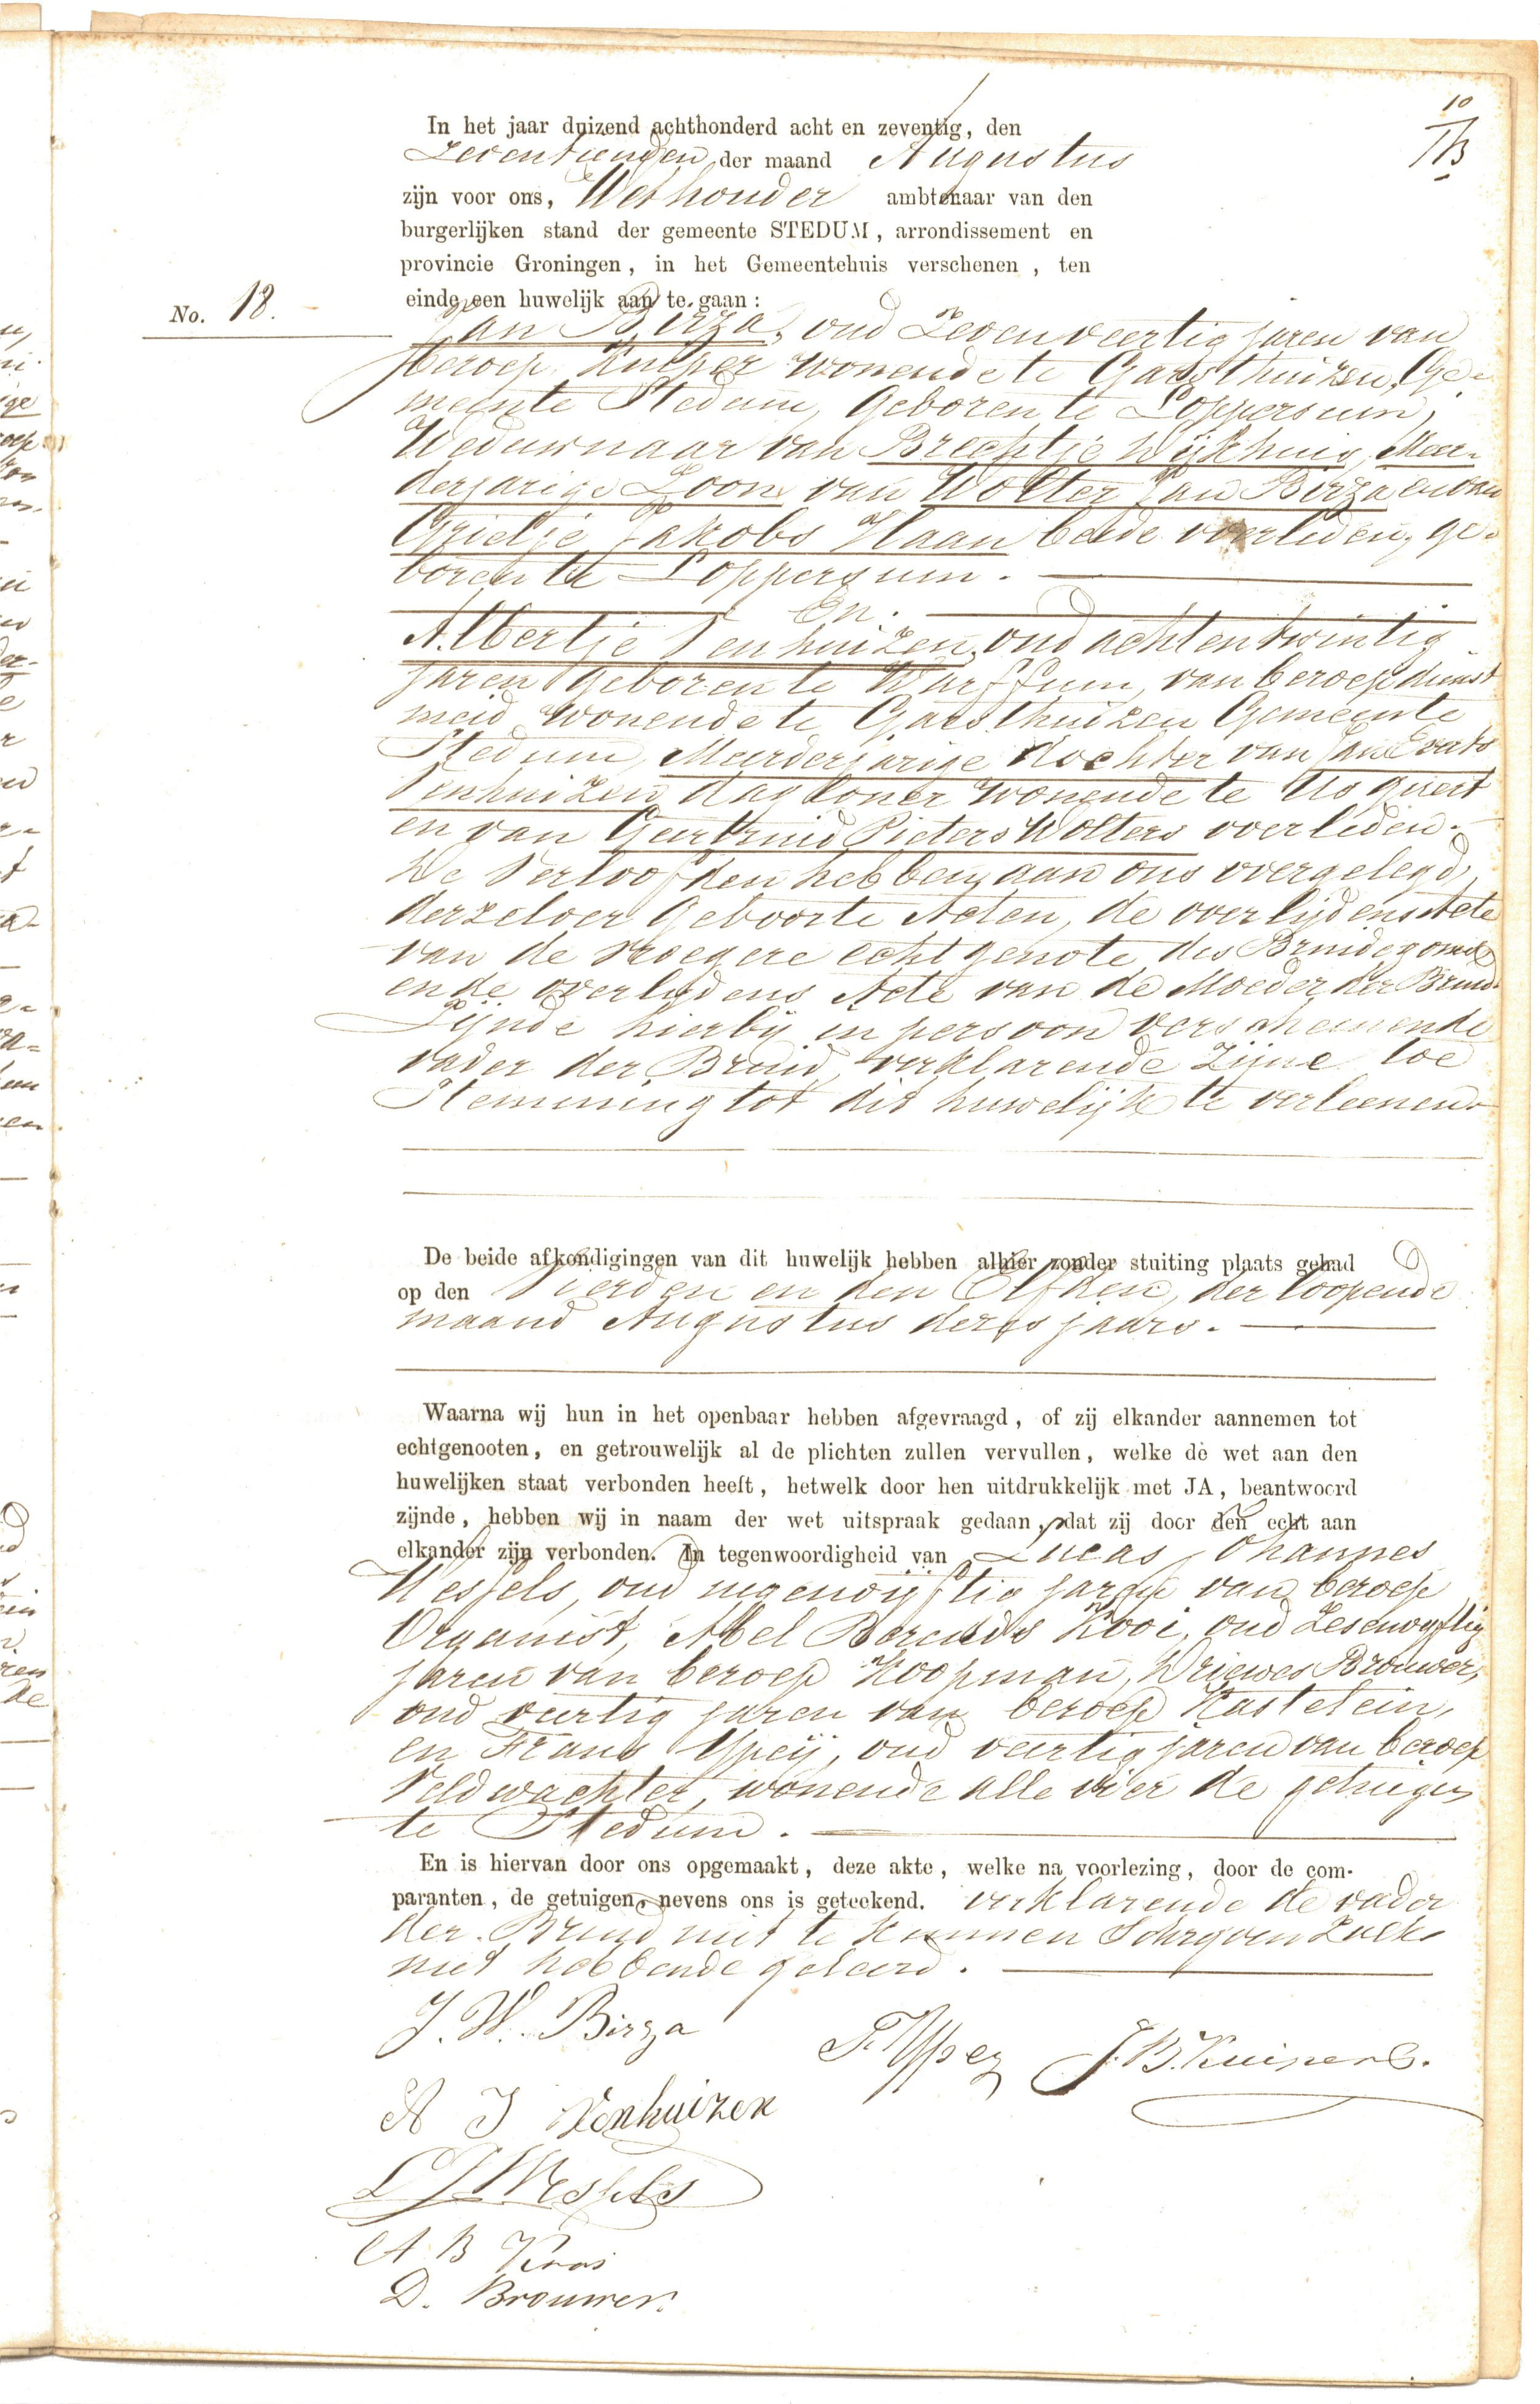 10
In het jaar duizend achthonderd acht en zeventig, den
Zeventienden der maand Augustus
zijn voor ons, Wethouder ambtenaar van den
burgerlijken stand der gemeente STEDUM, arrondissement en
provincie Groningen, in het Gemeentehuis verschenen, ten
einde een huwelijk aan te gaan:
No. 18.
Jan Birza, oud Zevenveertig jaren van
beroep Kuiper wonende te Garsthuizen, Ge-
meente Stedum, Geboren te Loppersum,
Weduwnaar van Brechtje Wijkhuis, Meer-
derjarige Zoon van Wolter Jan Birza en van
Grietje Jakobs Haan beide overleden, ge-
boren te Loppersum.
En.
Albertje Venhuizen, oud achtentwintig
jaren geboren te Warffum, van beroep dienst
meid wonende te Garsthuizen Gemeente
Stedum, Meerderjarige Dochter van Jan Everts
Venhuizen dagloner wonende te Usquert
en van Geertruid Pieters Wolters overleden.
De Verloofden hebben aan ons overgelegd,
derzelver Geboorte Acten, de overlijdens Acte
van de vroegere echtgenote des Bruidegoms
en de overlijdens Acte van de Moeder der Bruid.
Zijnde hierbij in persoon verschenende
vader der Bruid, verklarende Zijne toe
Stemming tot dit huwelijk te verleenen.
De beide afkondigingen van dit huwelijk hebben alhier zonder stuiting plaats gehad
op den Vierden en den Elfden, der loopende
maand Augustus dezes jaars.
Waarna wij hun in het openbaar hebben afgevraagd, of zij elkander aannemen tot
echtgenooten, en getrouwelijk al de plichten zullen vervullen, welke de wet aan den
huwelijken staat verbonden heeft, hetwelk door hen uitdrukkelijk met JA, beantwoord
zijnde, hebben wij in naam der wet uitspraak gedaan, dat zij door den echt aan
elkander zijn verbonden. In tegenwoordigheid van Lucas Johannes
Wessels, oud negenvijftig jaren van beroep
Organist, Abel Berends Kooi, oud Zesenvijftig
jaren van beroep Koopman, Driewes Brouwer,
oud veertig jaren van beroep Kastelein,
en Frans Ypeij, oud veertig jaren van beroep
Veldwachter, wonende alle vier de getuigen
te Stedum.
En is hiervan door ons opgemaakt, deze akte, welke na voorlezing, door de com-
paranten, de getuigen, nevens ons is geteekend. verklarende de vader
der Bruid niet te kunnen Schryven Zulks
niet hebbende geleerd.
J. W. Birza
F. Ypey J. B. Kuipers.
A J Venhuizen
L J Wessels
A B Kooi
D. Brouwer.